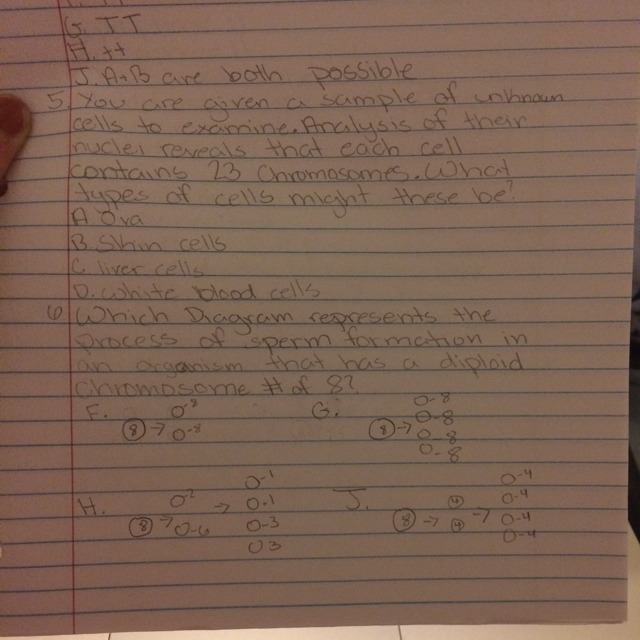 G. TT
H. tt
J. A+B are both possible
5 You are given a sample of unknown
cells to examine. Analysis of their
nuclei reveals that each cell
contains 23 chromosomes. What
types of cells might these be?
A. Ova
B. Skin cells
C. liver cells
D. White blood cells
6 Which Diagram represents the
process of sperm formation in
an organism that has a diploid
chromosome # of 8?
F. 8 → O-8 O-8
G. 8 → O-8 O-8 O-8 O-8
H. 8 → O-2 O-6 → O-1 O-1 O-3 O3
J. 8 → 4 4 → O-4 O-4 O-4 O-4